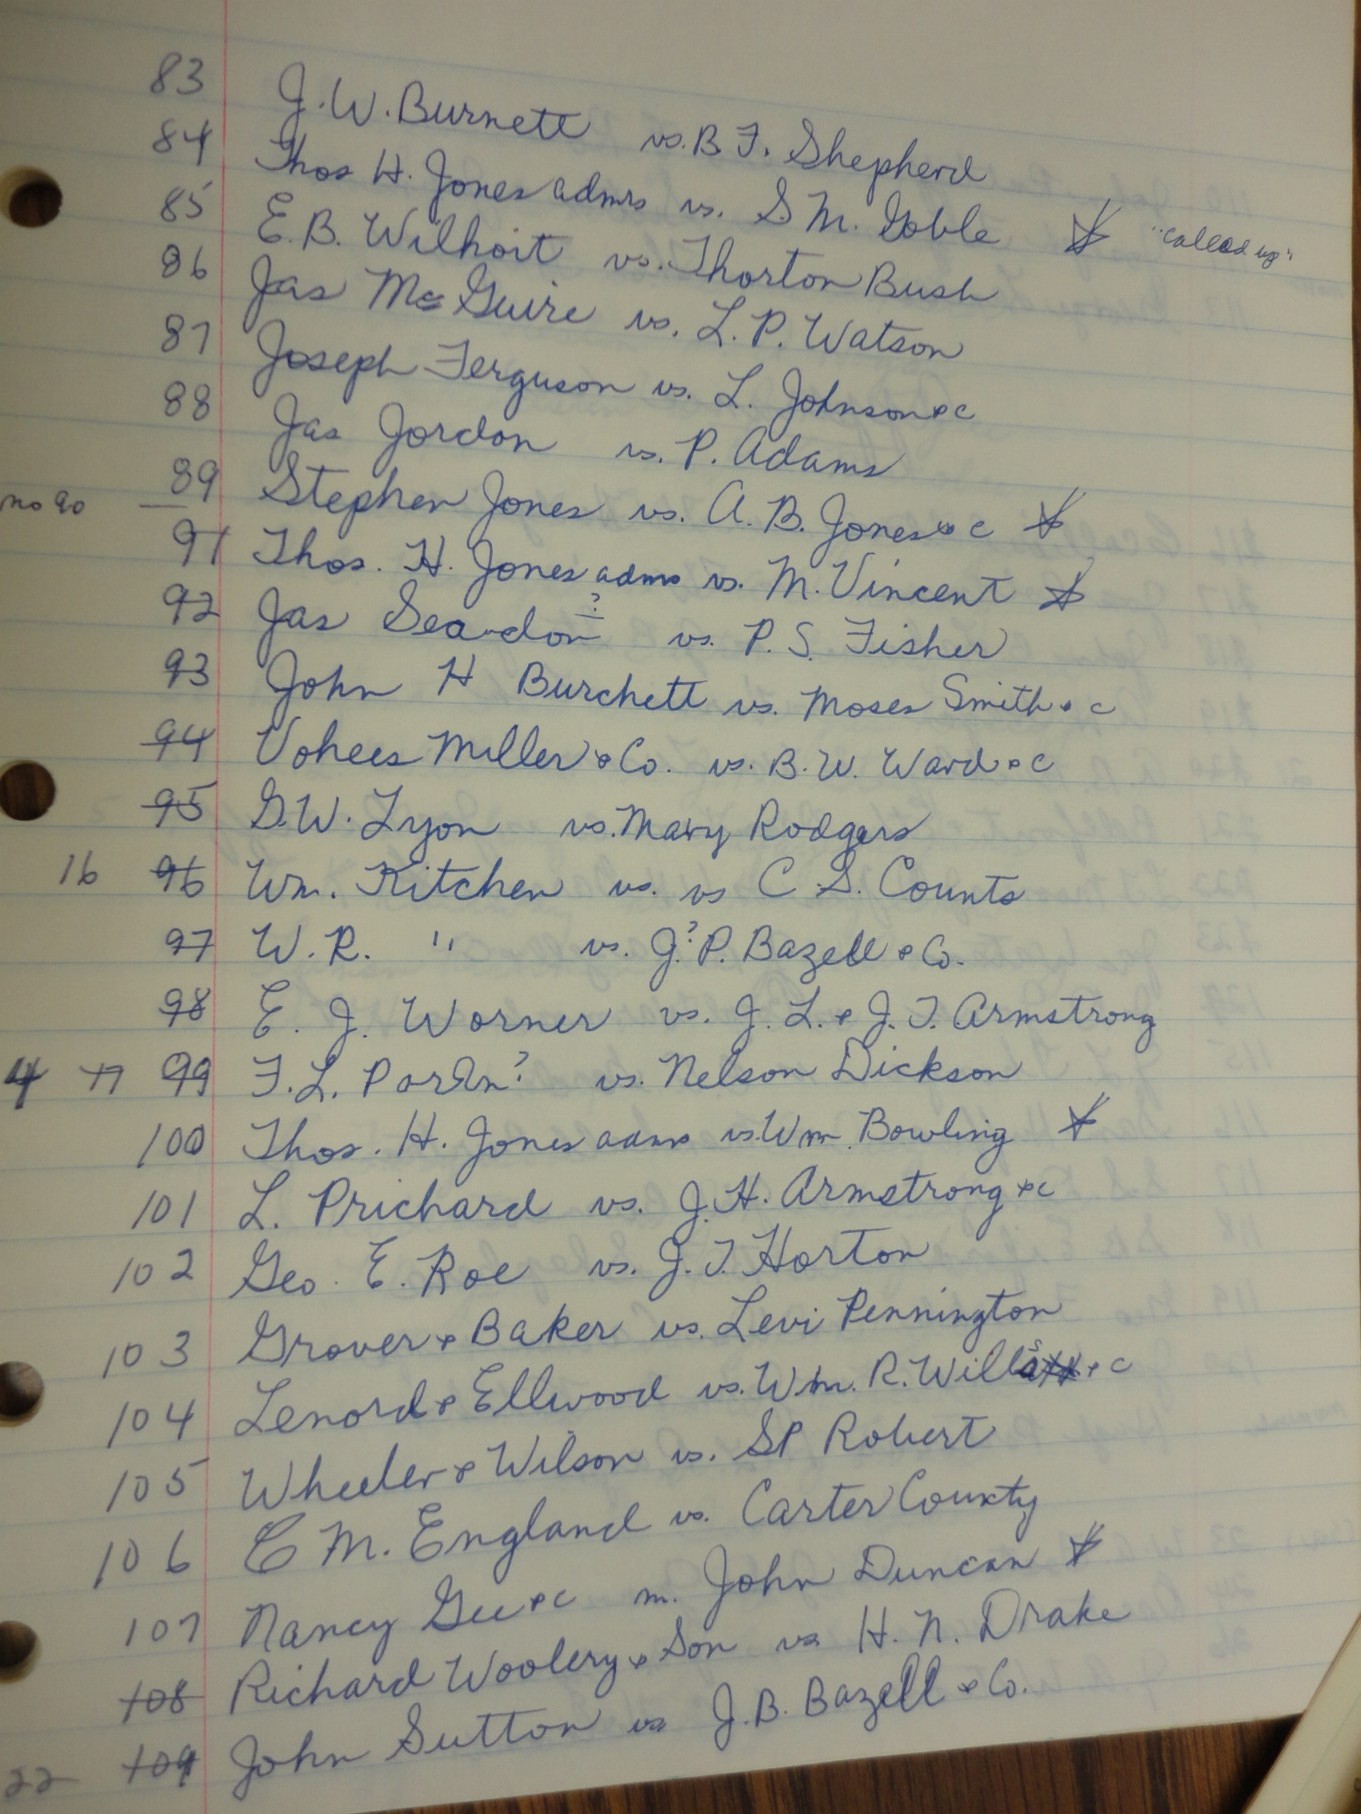 83 J. W. Burnett vs. B F. Shepherd
84 Thos H. Jones admrs vs. S M. Goble ☆ "called up"
85 E. B. Wilhoit vs. Thorton Bush
86 Jas McGuire vs. L. P. Watson
87 Joseph Ferguson vs. L. Johnson & c
88 Jas Jordon vs. P. Adams
no 90 89 Stephen Jones vs. A. B. Jones & c ☆
91 Thos. H. Jones adms vs. M. Vincent ☆
92 Jas Seadon ? vs. P. S. Fisher
93 John H Burchett vs. Moses Smith & c
94 Vohees Miller & Co. vs. B. W. Ward & c
95 G. W. Lyon vs. Mary Rodgers
16 96 Wm. Kitchen vs. vs C S. Counts
97 W. R. " vs. J.? P. Bazell & Co.
98 E. J. Worner vs. J. L. & J. T. Armstrong
4 99 F. L. vs. Nelson Dickson
100 Thos. H. Jones adms vs. Wm. Bowling ☆
101 L. Prichard vs. J. H. Armstrong & c
102 Geo. E. Roe vs. J. T. Horton
103 Grover & Baker vs. Levi Pennington
104 Lenord & Ellwood vs. Wm. R. & c
105 Wheeler & Wilson vs. SP Robert
106 C M. England vs. Carter County
107 Nancy Gee & c vs. John Duncan ☆
108 Richard Woolery & Son vs H. N. Drake
22 109 John Sutton vs J. B. Bazell & Co.